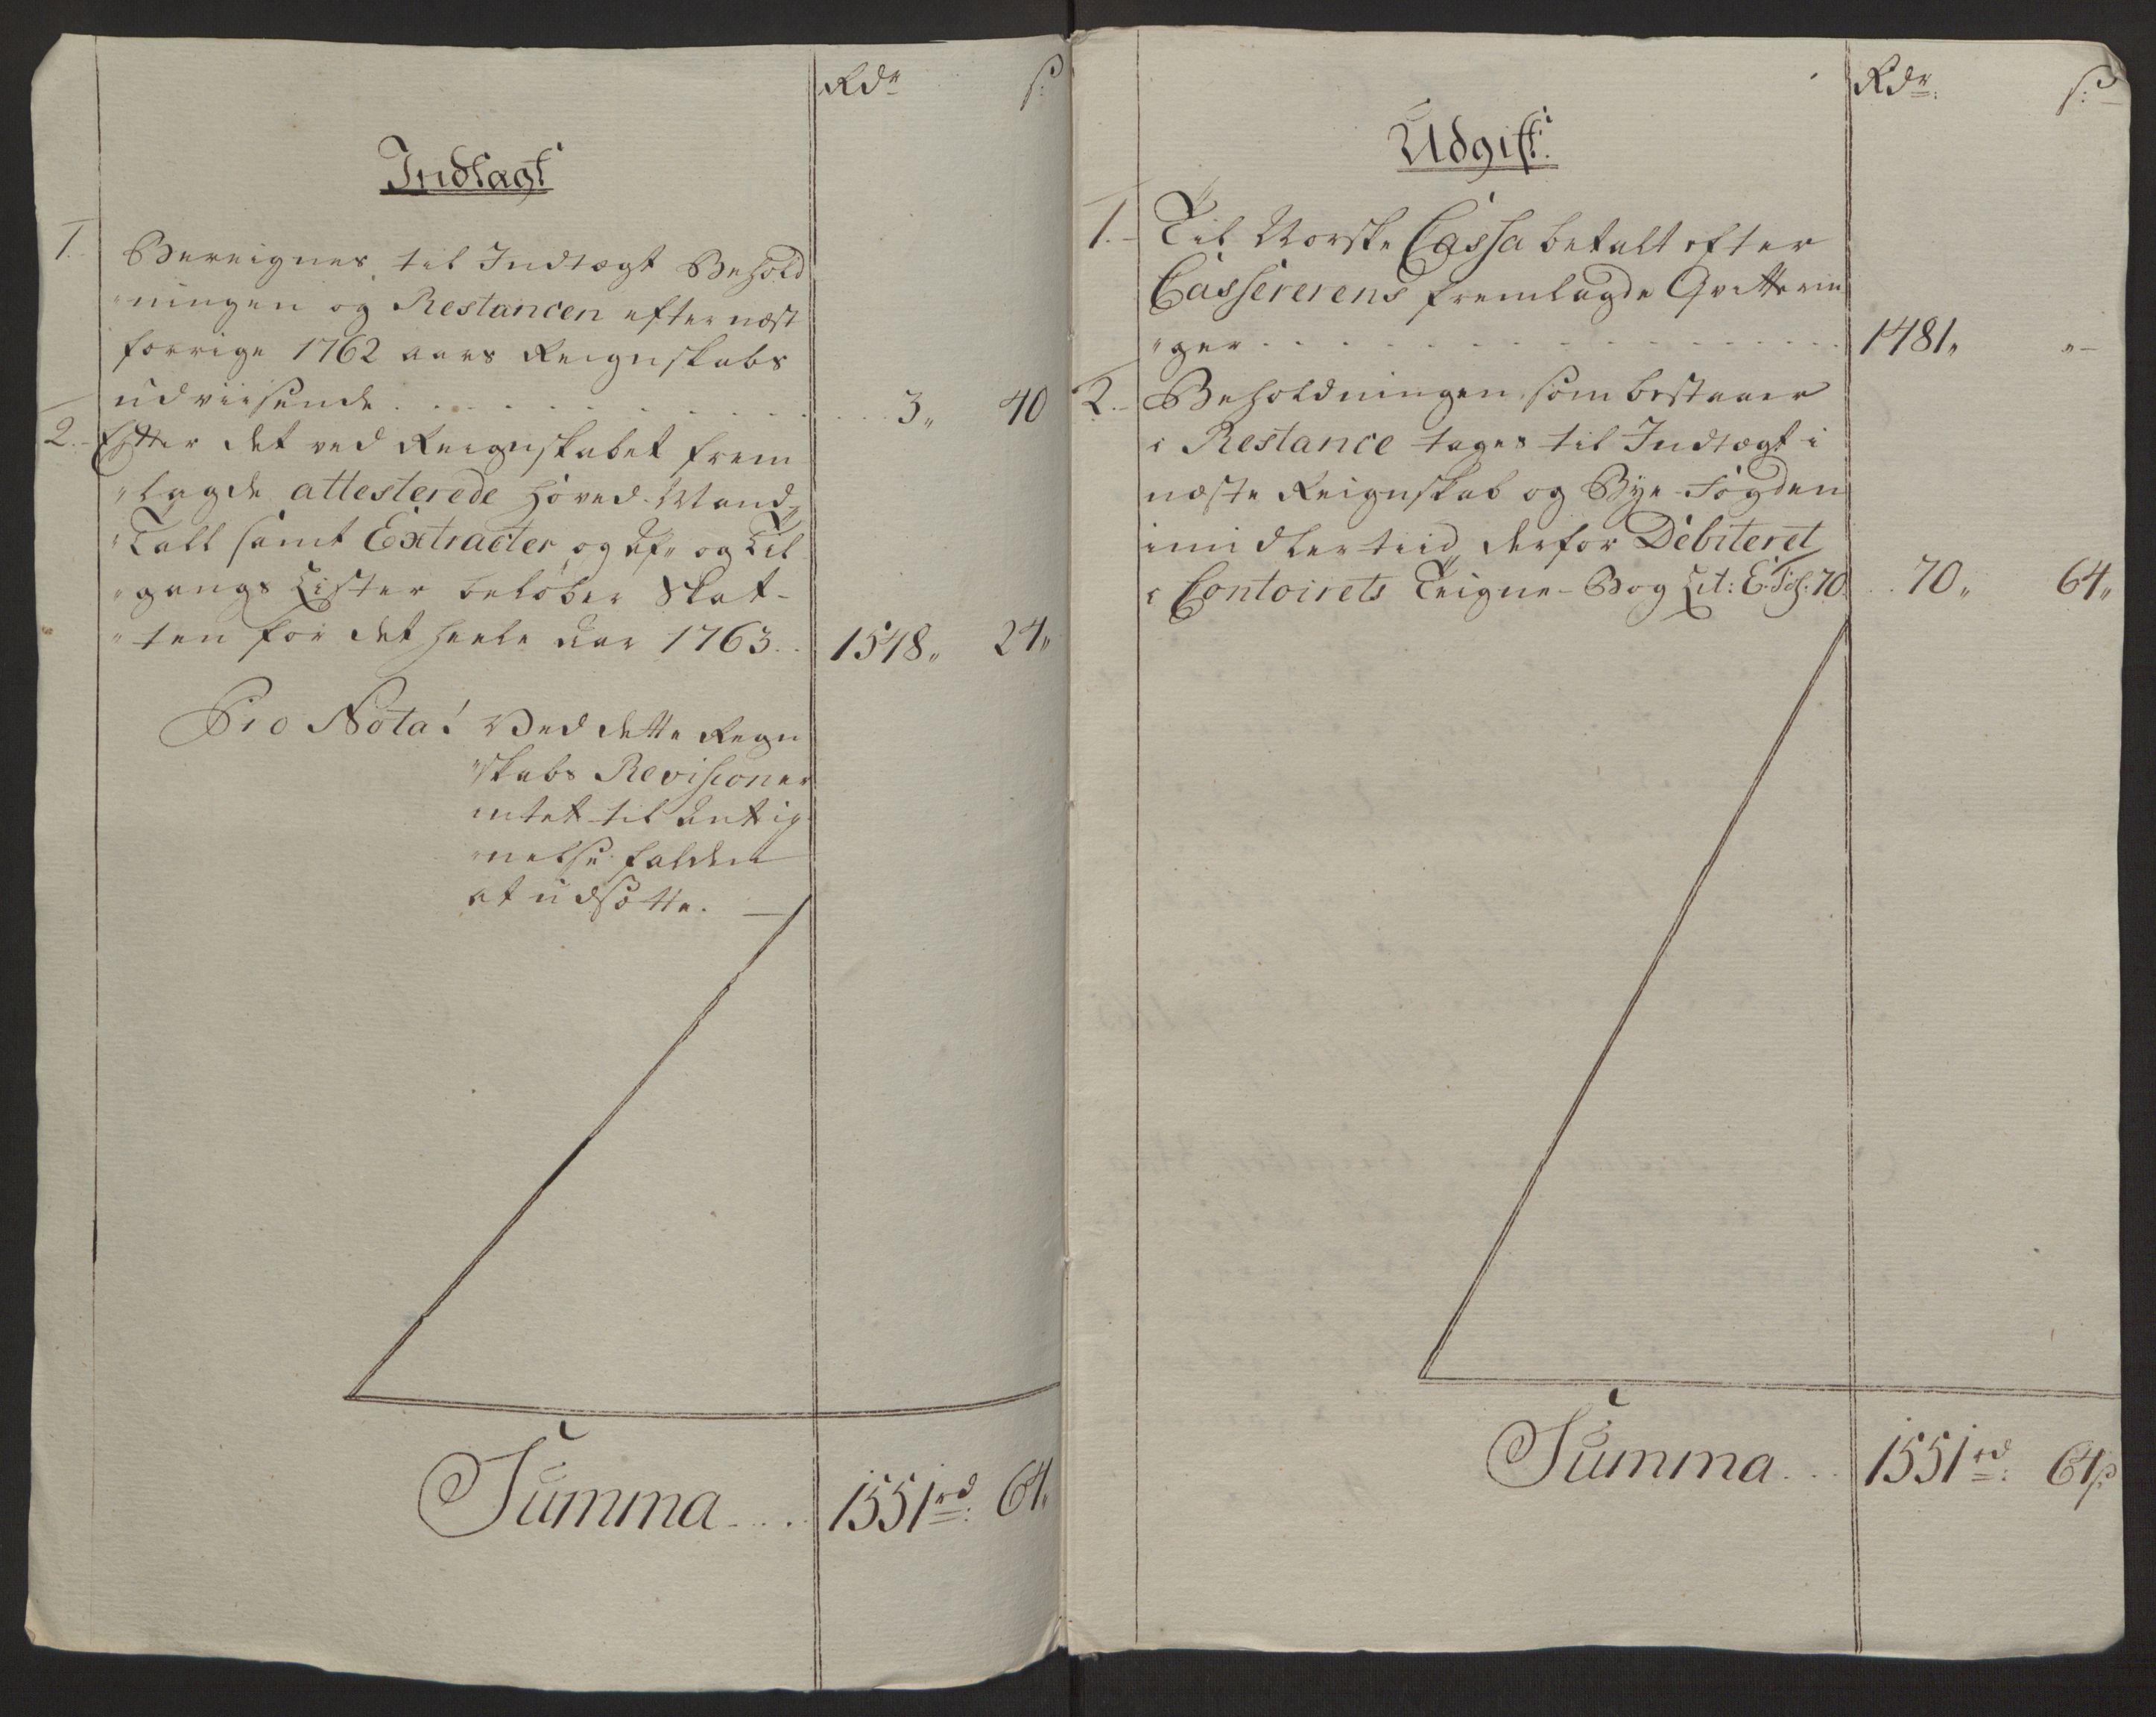 Rdr s:
Indtægt
1. Bereignes til Indtægt Behold
"ningen og Restancen efter næst
forrige 1762 aars Reignskabs
udviisende . . . . 3„ 40
2. Efter det ved Reignskabet frem
"lagde attesterede Hoved-Mand„
"Tall samt Extracter og Af„ og Til
"gangs Lister beløber Skat-
"ten for det heele Aar 1763. . 1548„ 24„
Pro Nota! Ved dette Regn
"skabs Revisioner
intet til Antig
"nelse falden
at udsætte. —
Summa . . . . 1551rd: 64„
Rdr: s:
Udgift:
1. Til Norske Cassa betalt efter
Cassererens fremlagde Qvitterin
"ger . . . . 1481„ „-
2. Beholdningen som bestaaer
i Restance tages til Indtægt i
næste Reignskab og Bye-Fogden
imidlertiid derfor Debiteret
i Contoirets Teigne-Bog Lit: E. Fol: 70. . . 70„ 64„
Summa . . . 1551rd: 64s: